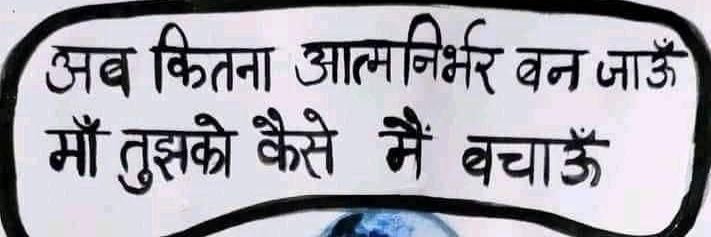 अब कितना आत्मनिर्भर बन जाऊँ
माँ तुझको कैसे मैं बचाऊँ